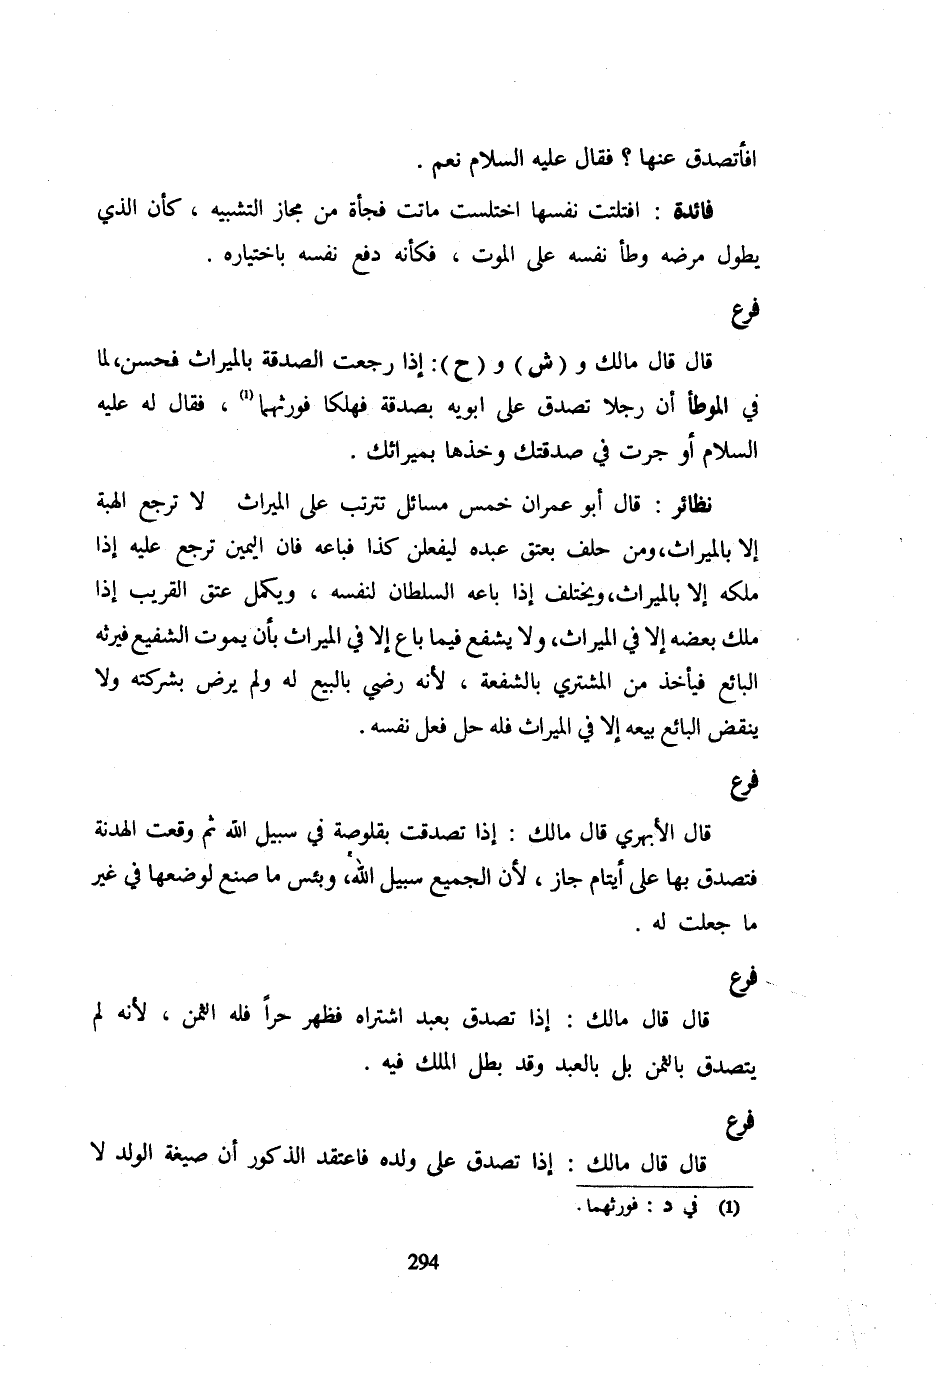 افأتصدق عنها ؟ فقال عليه السلام نعم .
فائدة : افتلتت نفسها اختلست ماتت فجأة من مجاز التشبيه ، كأن الذي
يطول مرضه وطأ نفسه على الموت ، فكأنه دفع نفسه باختياره .
فرع
قال قال مالك و ( ش ) و ( ح ): إذا رجعت الصدقة بالميراث فحسن، لما
في الموطأ أن رجلا تصدق على ابويه بصدقة فهلكا فورثها (1) ، فقال له عليه
السلام أو جرت في صدقتك وخذها بميراثك .
نظائر : قال أبو عمران خمس مسائل تترتب على الميراث لا ترجع الهبة
إلا بالميراث، ومن حلف بعتق عبده ليفعلن كذا فباعه فان اليمين ترجع عليه إذا
ملكه إلا بالميراث، ويختلف إذا باعه السلطان لنفسه ، ويكمل عتق القريب إذا
ملك بعضه إلا في الميراث، ولا يشفع فيما باع إلا في الميراث بأن يموت الشفيع فيرثه
البائع فيأخذ من المشتري بالشفعة ، لأنه رضي بالبيع له ولم يرض بشركته ولا
ينقض البائع بيعه إلا في الميراث فله حل فعل نفسه .
فرع
قال الأبهري قال مالك : إذا تصدقت بقلوصة في سبيل الله ثم وقعت الهدنة
فتصدق بها على أيتام جاز ، لأن الجميع سبيل الله، وبئس ما صنع لوضعها في غير
ما جعلت له .
فرع
قال قال مالك : إذا تصدق بعبد اشتراه فظهر حراً فله الثمن ، لأنه لم
يتصدق بالثمن بل بالعبد وقد بطل الملك فيه .
فرع
قال قال مالك : إذا تصدق على ولده فاعتقد الذكور أن صيغة الولد لا
(1) في د : فورثهما .
294